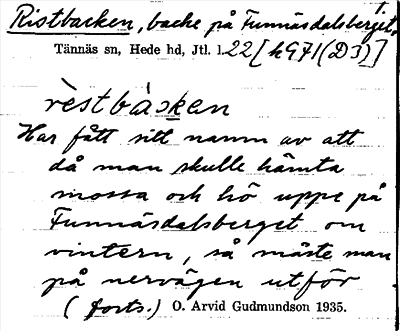 1.
Ristbacken, backe på Funnäsdalsberget.
Tännäs sn, Hede hd, Jtl. l. 22 [h 971(D3)]
rèstbàcken
Har fått sitt namn av att
då man skulle hämta
mossa och hö uppe på
Funnäsdalsberget om
vintern, så måste man
på nervägen utför
(forts.) O. Arvid Gudmundson 1935.